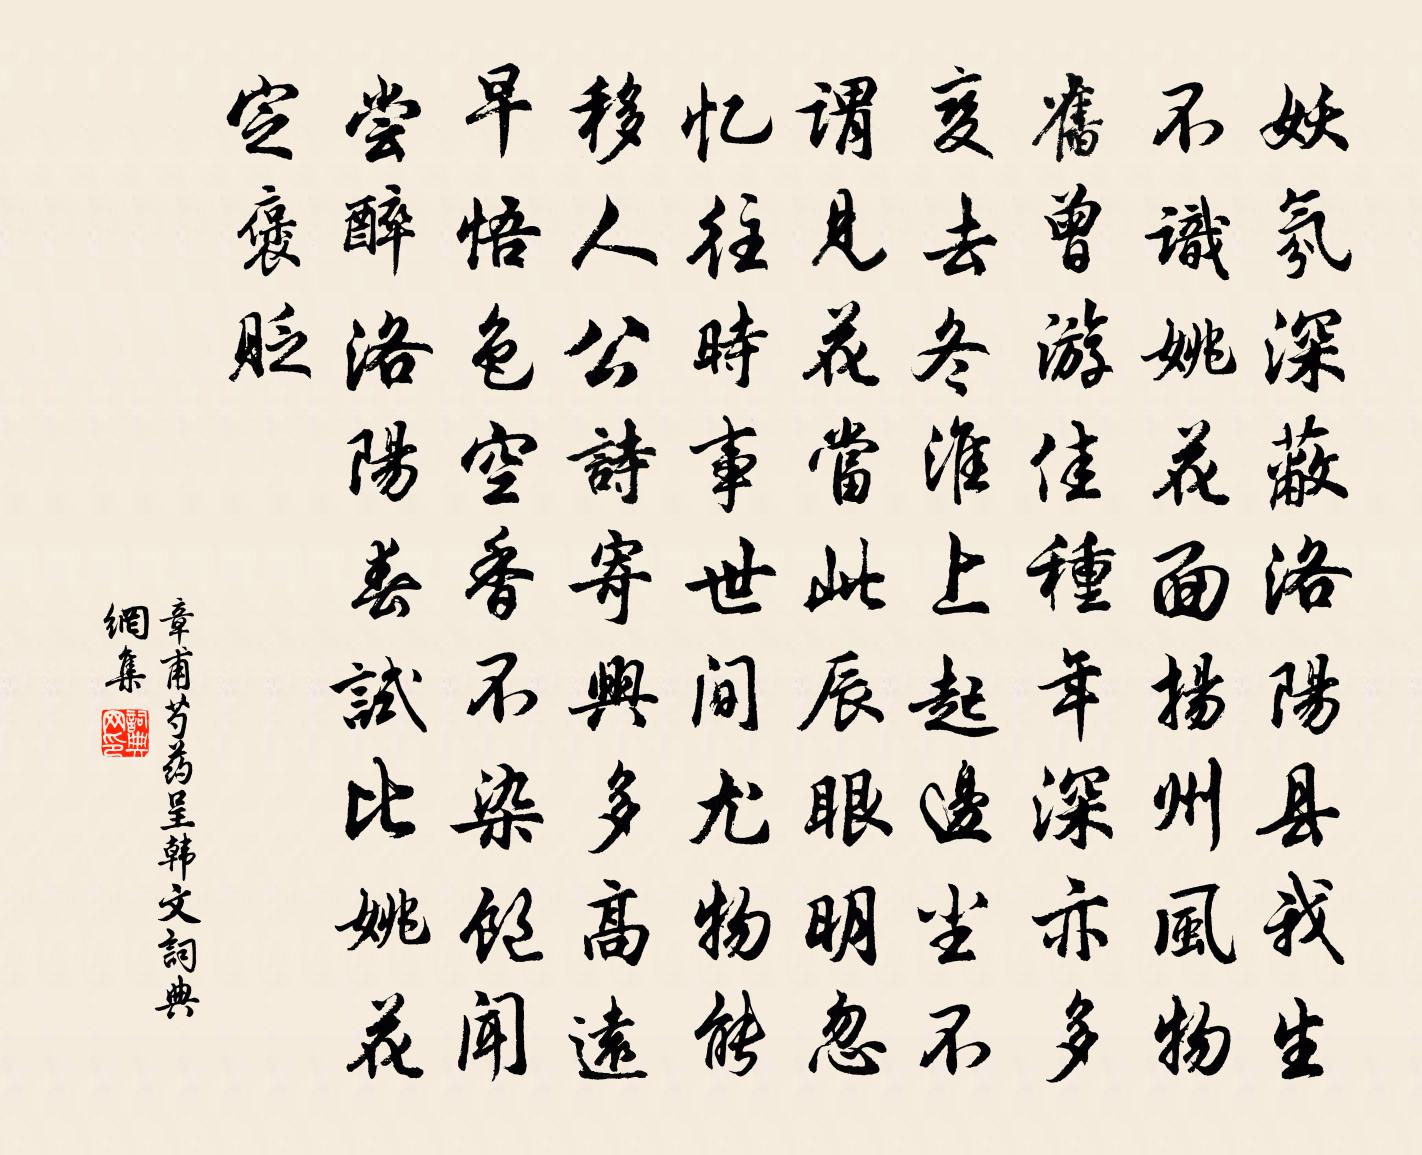 妖氛深蔽洛陽县我生
不識姚花面揚州風物
舊曾游佳種年深亦多
变去冬淮上起邊尘不
谓見花當此辰眼明忽
忆往時事世间尤物能
移人公詩寄興多高遠
早悟色空香不染飽聞
尝醉洛陽春試比姚花
定褒貶
章甫芍药呈韩文詞典
網集
詞典
网印